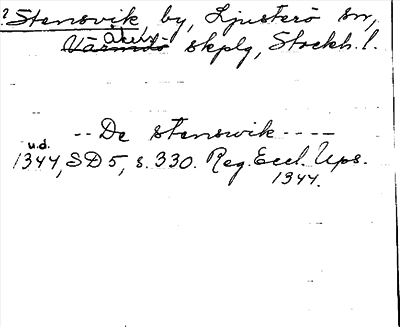 ? Stensvik, by, Ljusterö sn,
Åkers
Värmdö skplg, Stockh. l.
-- De stenswik ----
u.d.
1344, SD 5, s. 330. Reg. Eccl. Ups.
1344.